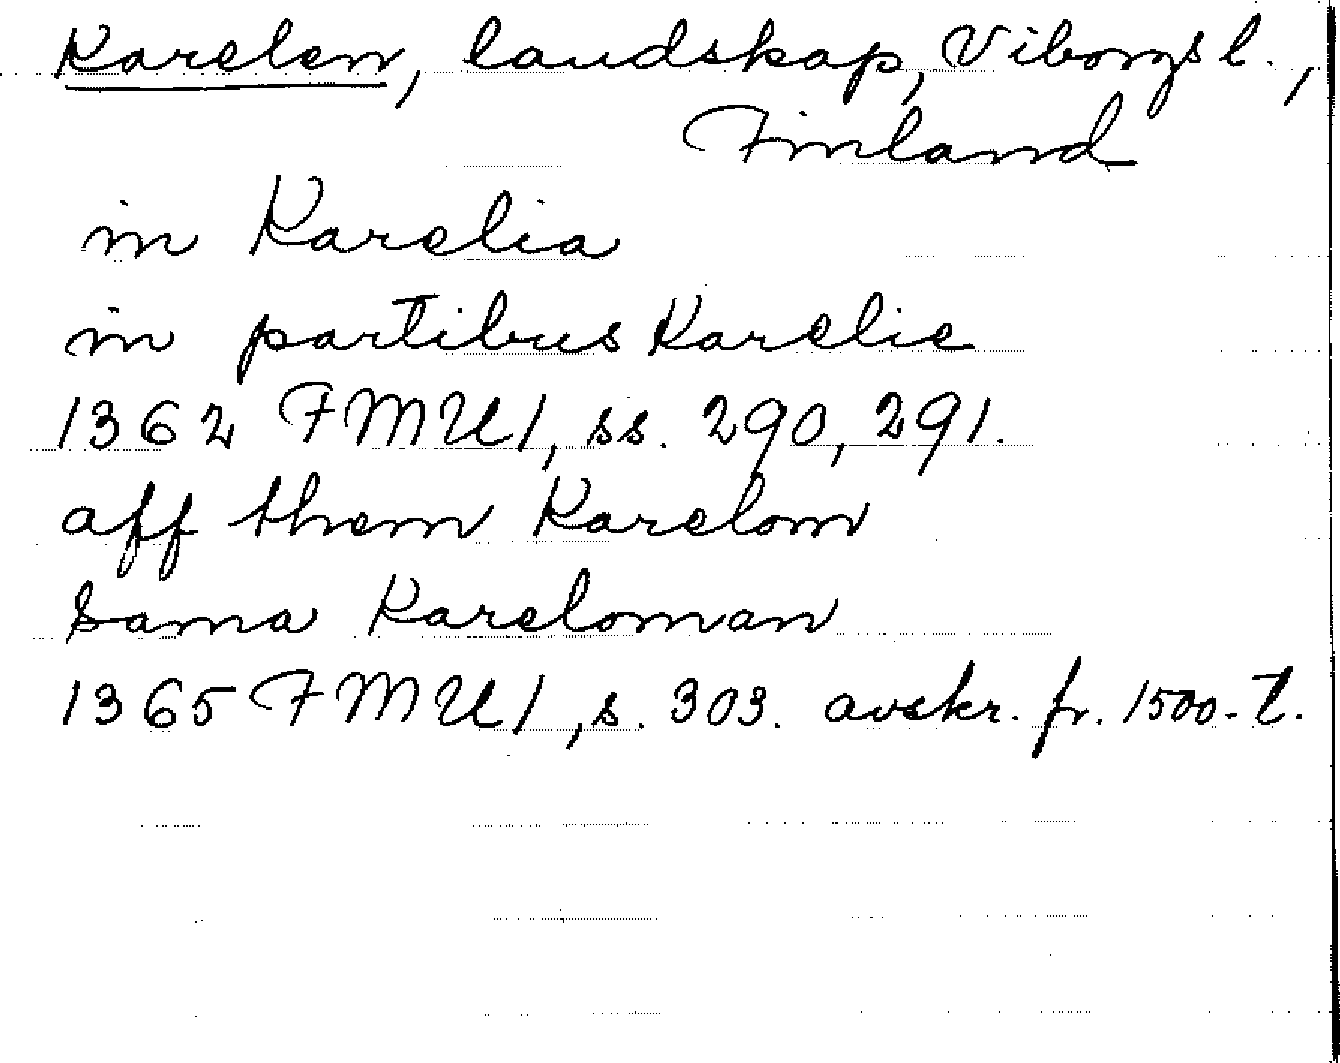 Karelen, landskap, Viborgs l.,
Finland
in Karelia
in partibus Karelie
1362 FMU 1, ss. 290, 291.
aff them Karelom
sama Kareloman
1365 FMU 1, s. 303. avskr. fr. 1500-t.